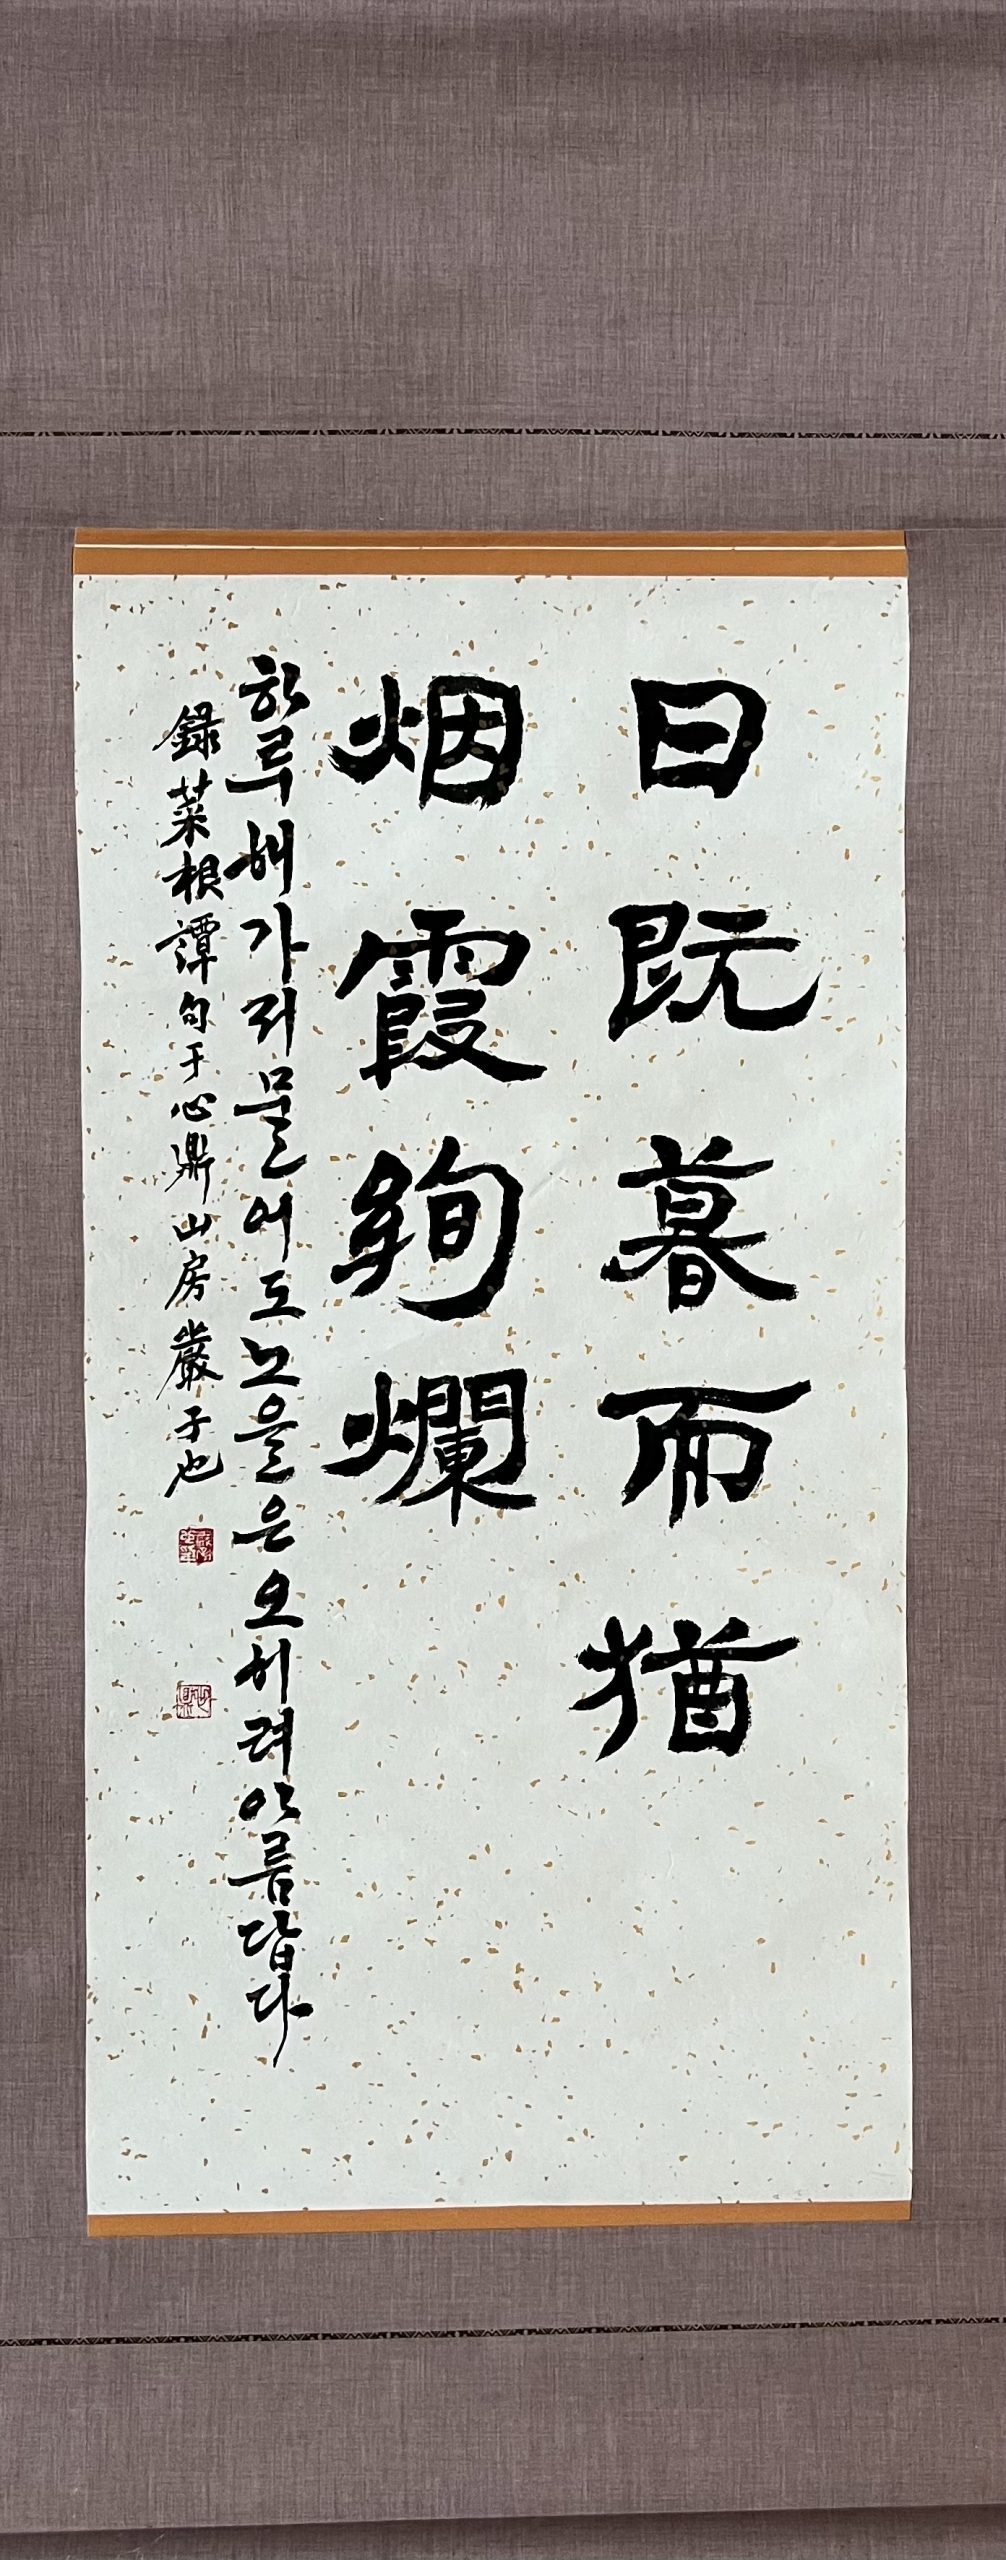 日既暮而猶
烟霞絢爛
하루해가 저물어도 노을은 오히려 아름답다
錄菜根譚句于心鼎山房 嚴子也